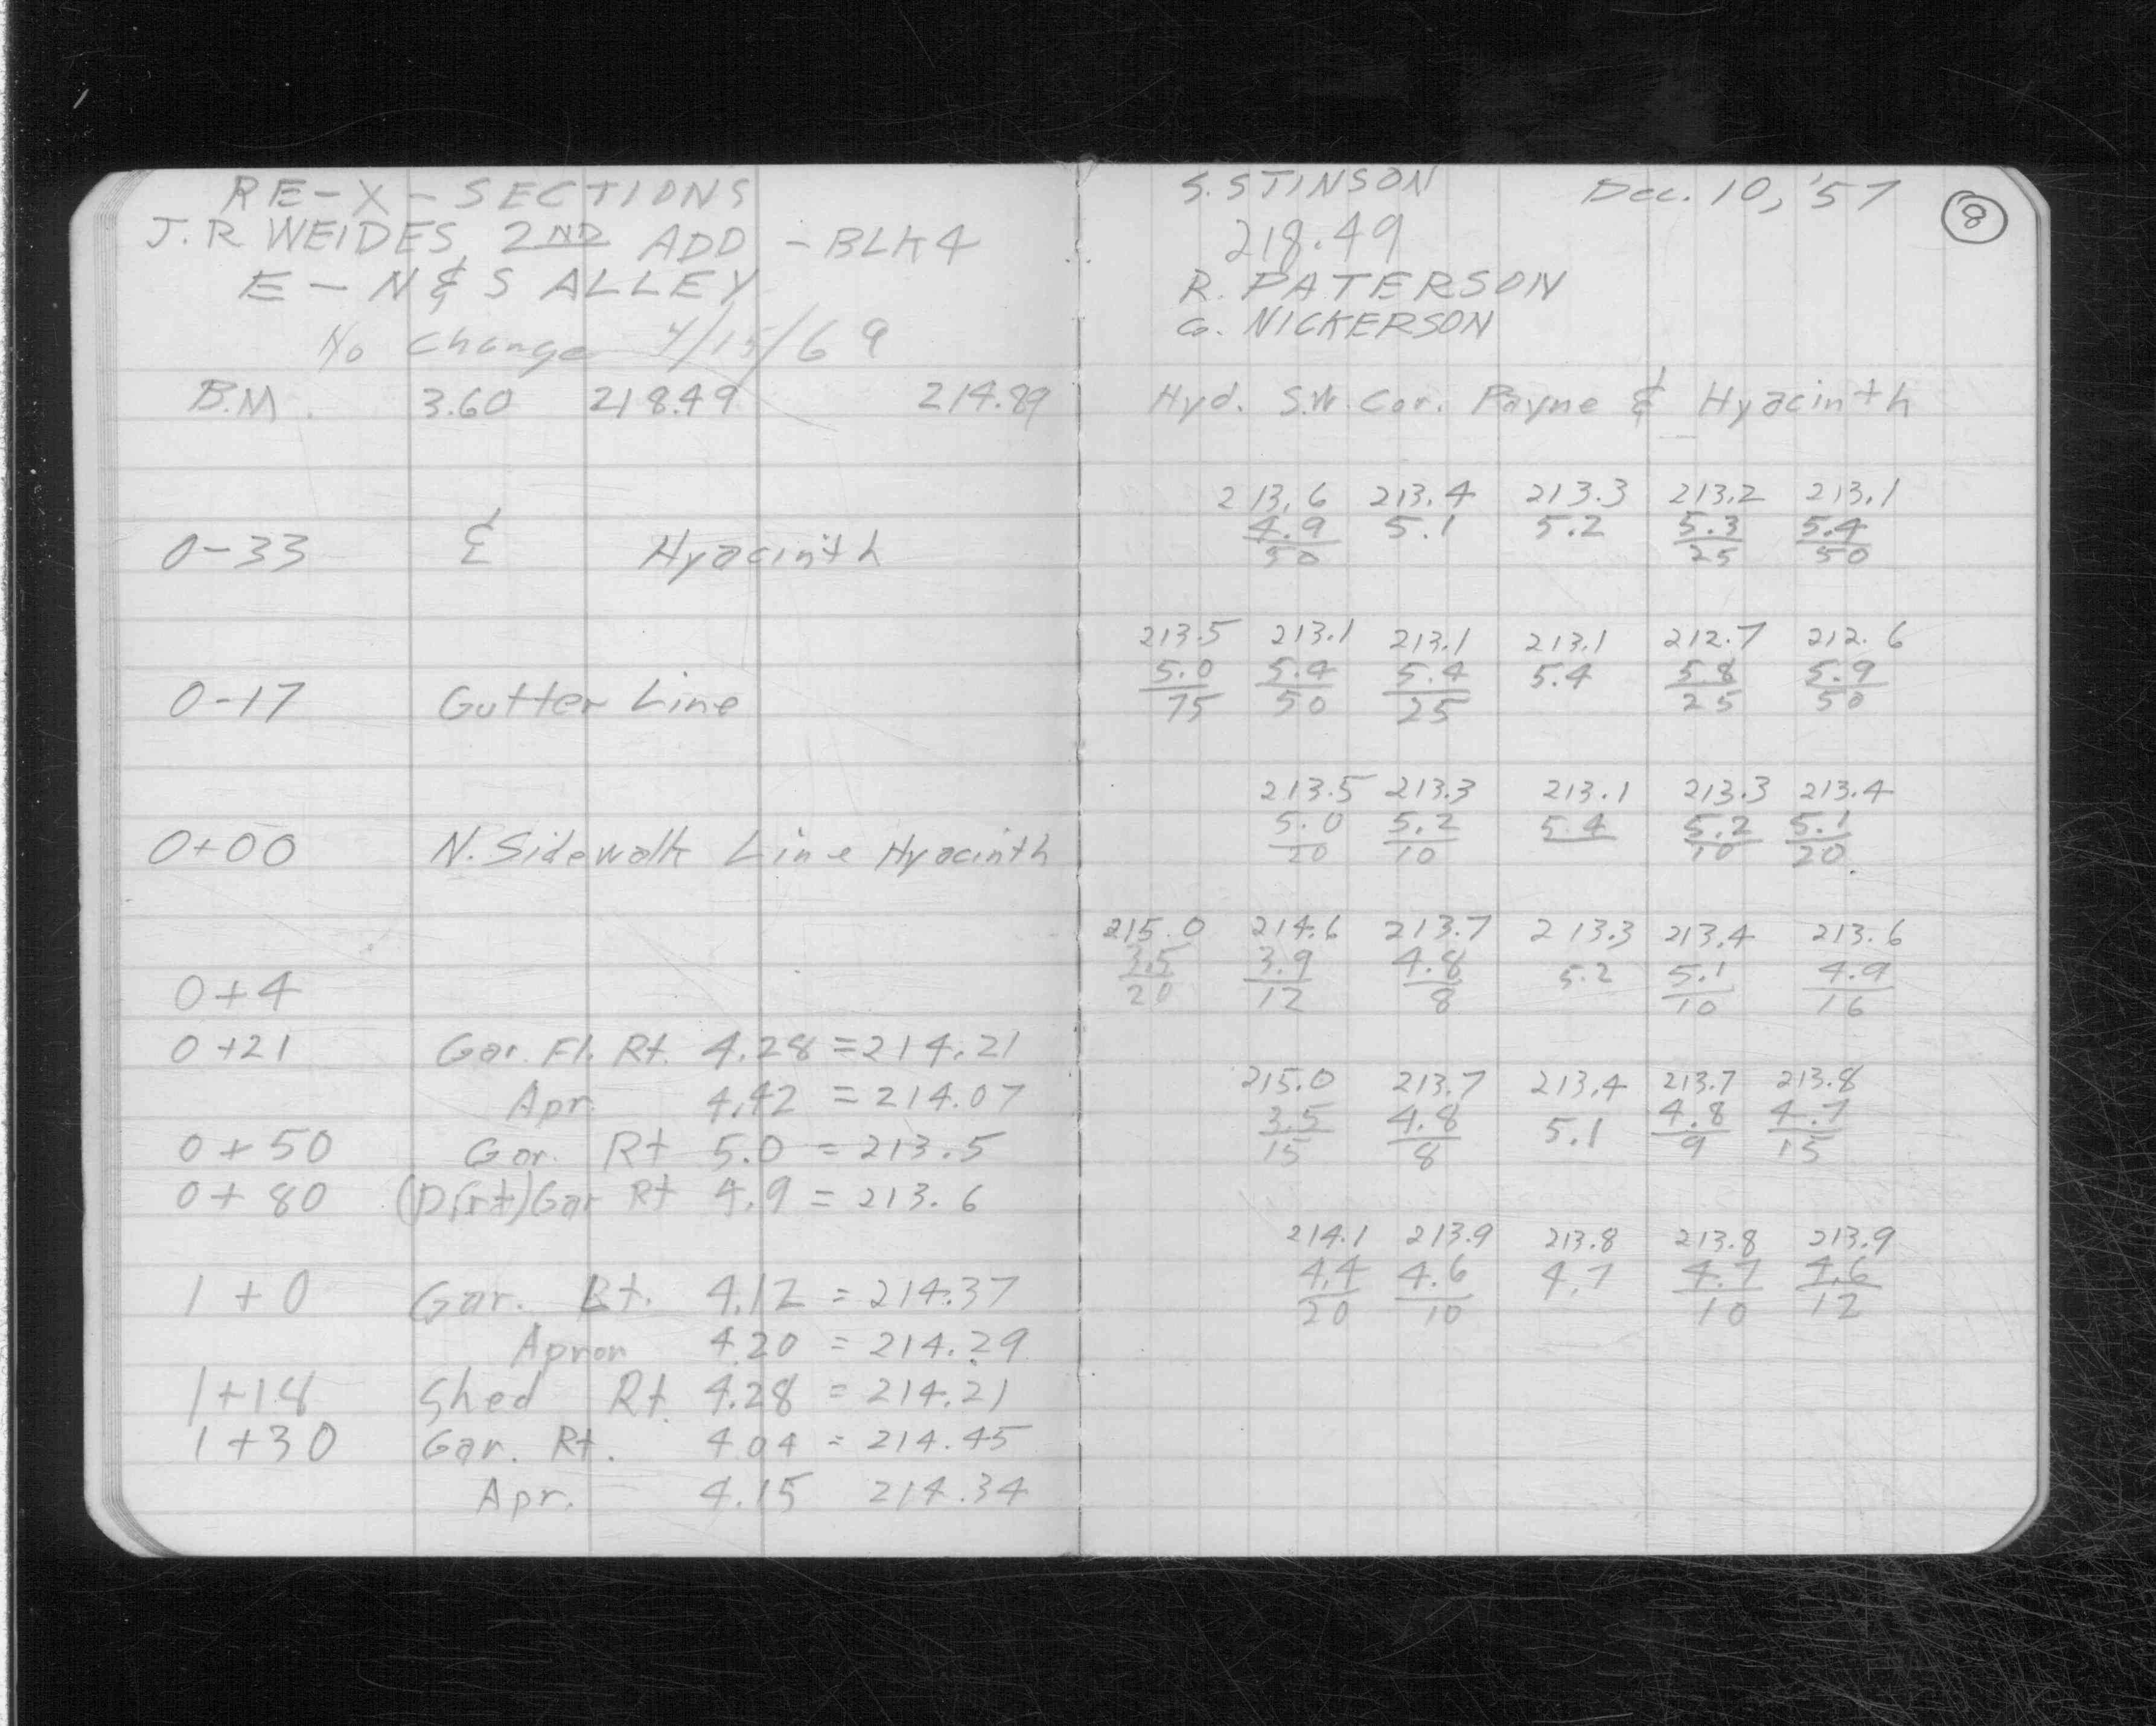 RE-X-SECTIONS
J.R WEIDES 2ND ADD - BLK 4
E - N & S ALLEY
No change 4/15/69
B.M. 3.60 218.49 214.89
0-33 ℄ Hyacinth
0-17 Gutter Line
0+00 N. Sidewalk Line Hyacinth
0+4
0+21 Gar. Fl. Rt. 4.28 = 214.21
Apr. 4.42 = 214.07
0+50 Gar. Rt 5.0 = 213.5
0+80 (Dirt) Gar Rt 4.9 = 213.6
1+0 Gar. Lt. 4.12 = 214.37
Apron 4.20 = 214.29
1+18 Shed Rt. 4.28 = 214.21
1+30 Gar. Rt. 4.04 = 214.45
Apr. 4.15 214.34
S. STINSON Dec. 10, '57 8
218.49
R. PATERSON
G. NICKERSON
Hyd. S.W. Cor. Payne & Hyacinth
213.6 213.4 213.3 213.2 213.1
4.9 5.1 5.2 5.3 5.4
50 25 50
213.5 213.1 213.1 213.1 212.7 212.6
5.0 5.4 5.4 5.4 5.8 5.9
75 50 25 25 50
213.5 213.3 213.1 213.3 213.4
5.0 5.2 5.4 5.2 5.1
20 10 10 20
215.0 214.6 213.7 213.3 213.4 213.6
3.5 3.9 4.8 5.2 5.1 4.9
20 12 8 10 16
215.0 213.7 213.4 213.7 213.8
3.5 4.8 5.1 4.8 4.7
15 8 9 15
214.1 213.9 213.8 213.8 213.9
4.4 4.6 4.7 4.7 4.6
20 10 10 12